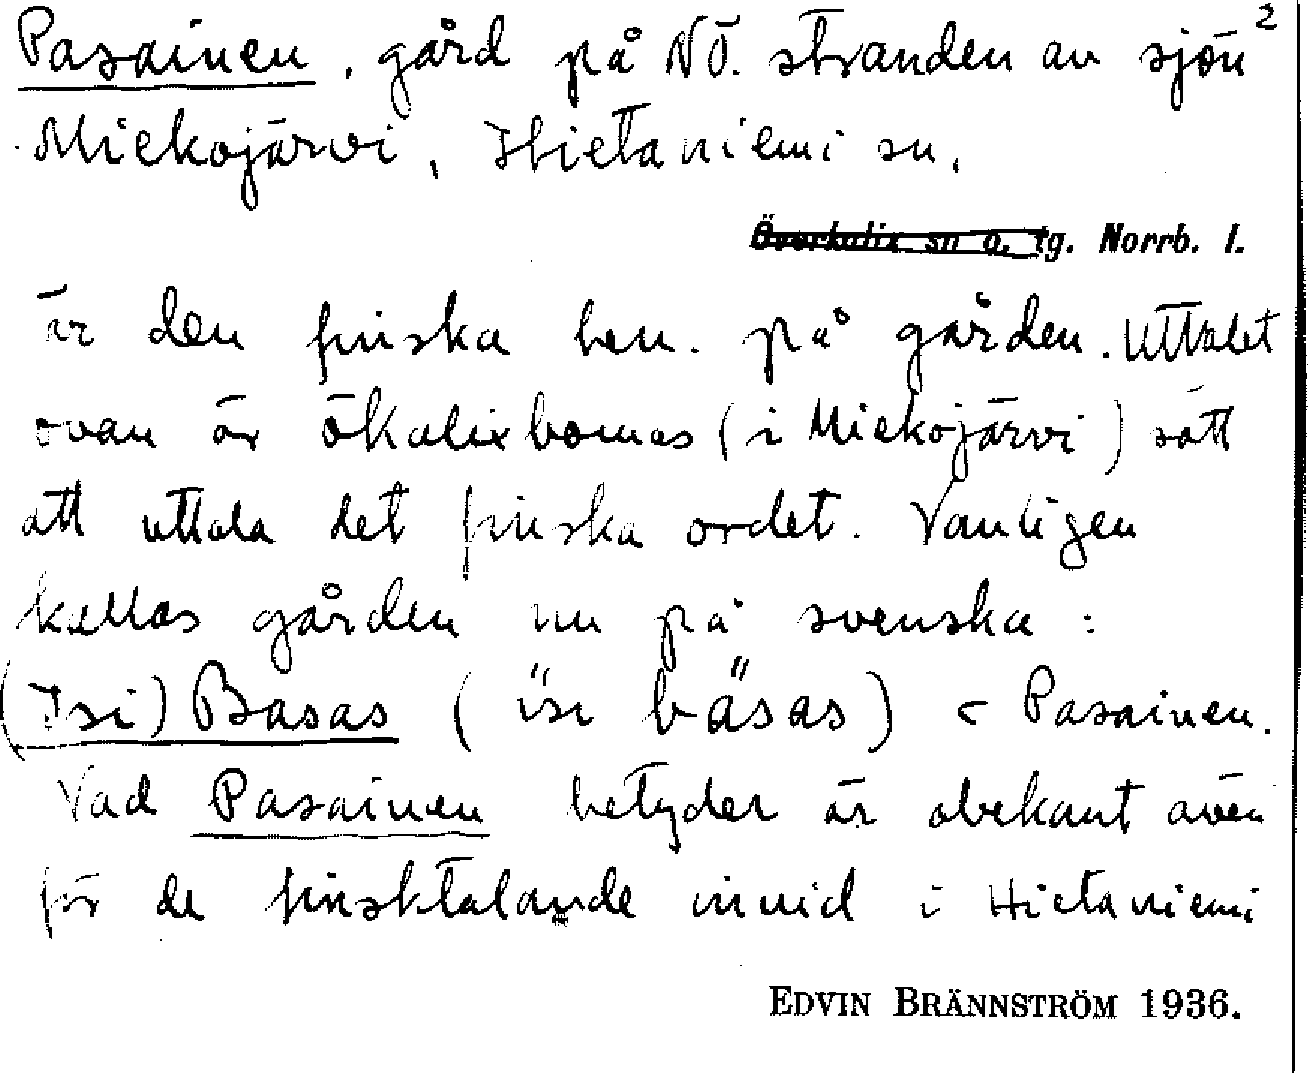 2
Pasainen, gård på NÖ. stranden av sjön
Miekojärvi, Hietaniemi sn.
Överkalix sn o. tg. Norrb. l.
är den finska ben. på gården. Uttalet
ovan är ökalixbornas (i Miekojärvi) sätt
att uttala det finska ordet. Vanligen
kallas gården nu på svenska:
(Isi) Basas ( ïsi bäsas) < Pasainen.
Vad Pasainen betyder är obekant även
för de finsktalande invid i Hietaniemi
EDVIN BRÄNNSTRÖM 1936.